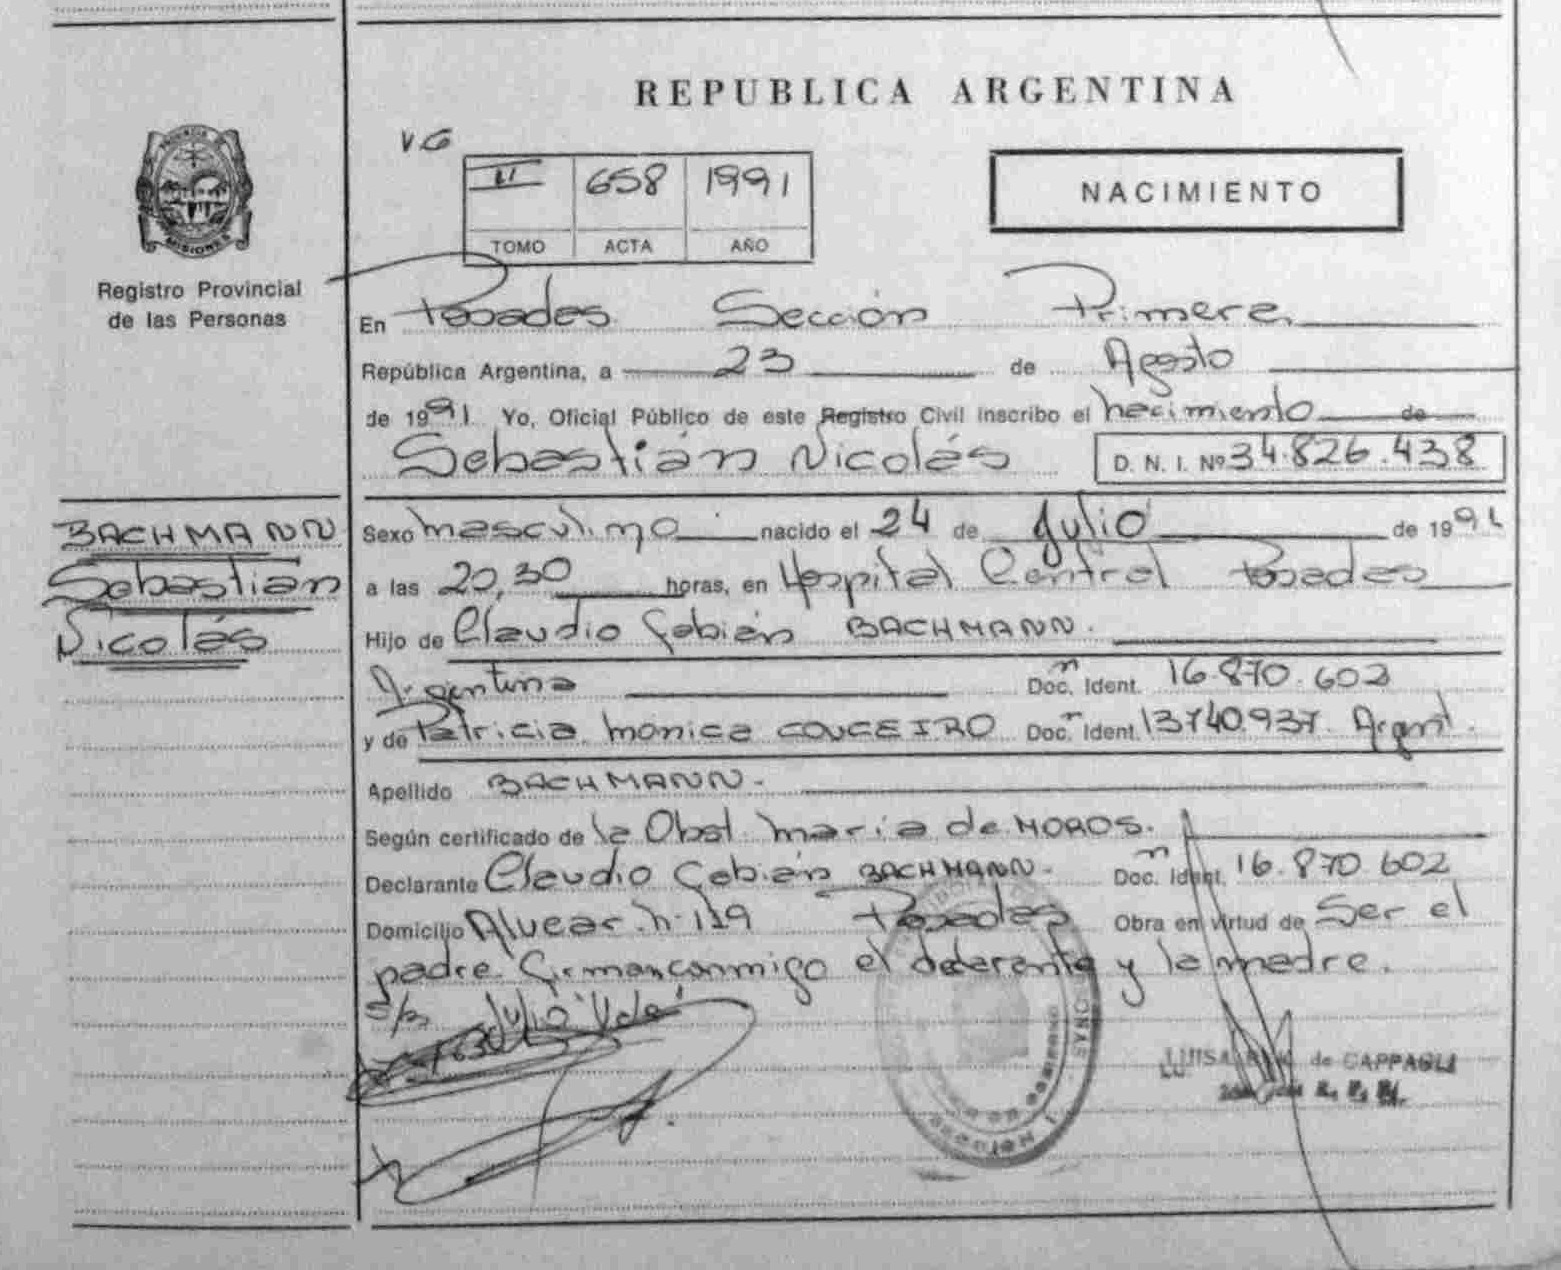 REPUBLICA ARGENTINA
V.G
II 658 1991
TOMO ACTA AÑO
NACIMIENTO
PROVINCIA DE
MISIONES
Registro Provincial
de las Personas
En Posadas Sección Primera
República Argentina, a 23 de Agosto
de 1991. Yo, Oficial Público de este Registro Civil inscribo el nacimiento de
Sebastián Nicolás D. N. I. Nº 34.826.438
BACHMANN
Sebastián
Nicolás
Sexo masculino nacido el 24 de Julio de 1991
a las 20,30 horas, en Hospital Central Posadas
Hijo de Claudio Fabián BACHMANN.
Argentina Doc. Ident. 16.870.602
y de Patricia Mónica COUCEIRO Doc. Ident. 13740.937. Argent.
Apellido BACHMANN.-
Según certificado de la Obst. María de MOROS.
Declarante Claudio Fabián BACHMANN. Doc. Ident. 16.870.602
Domicilio Alvear n. 119 Posadas Obra en virtud de Ser el
padre. Firman conmigo el declarante y la madre.
S/b Julio Vale
LUISA de CAPPAGLI